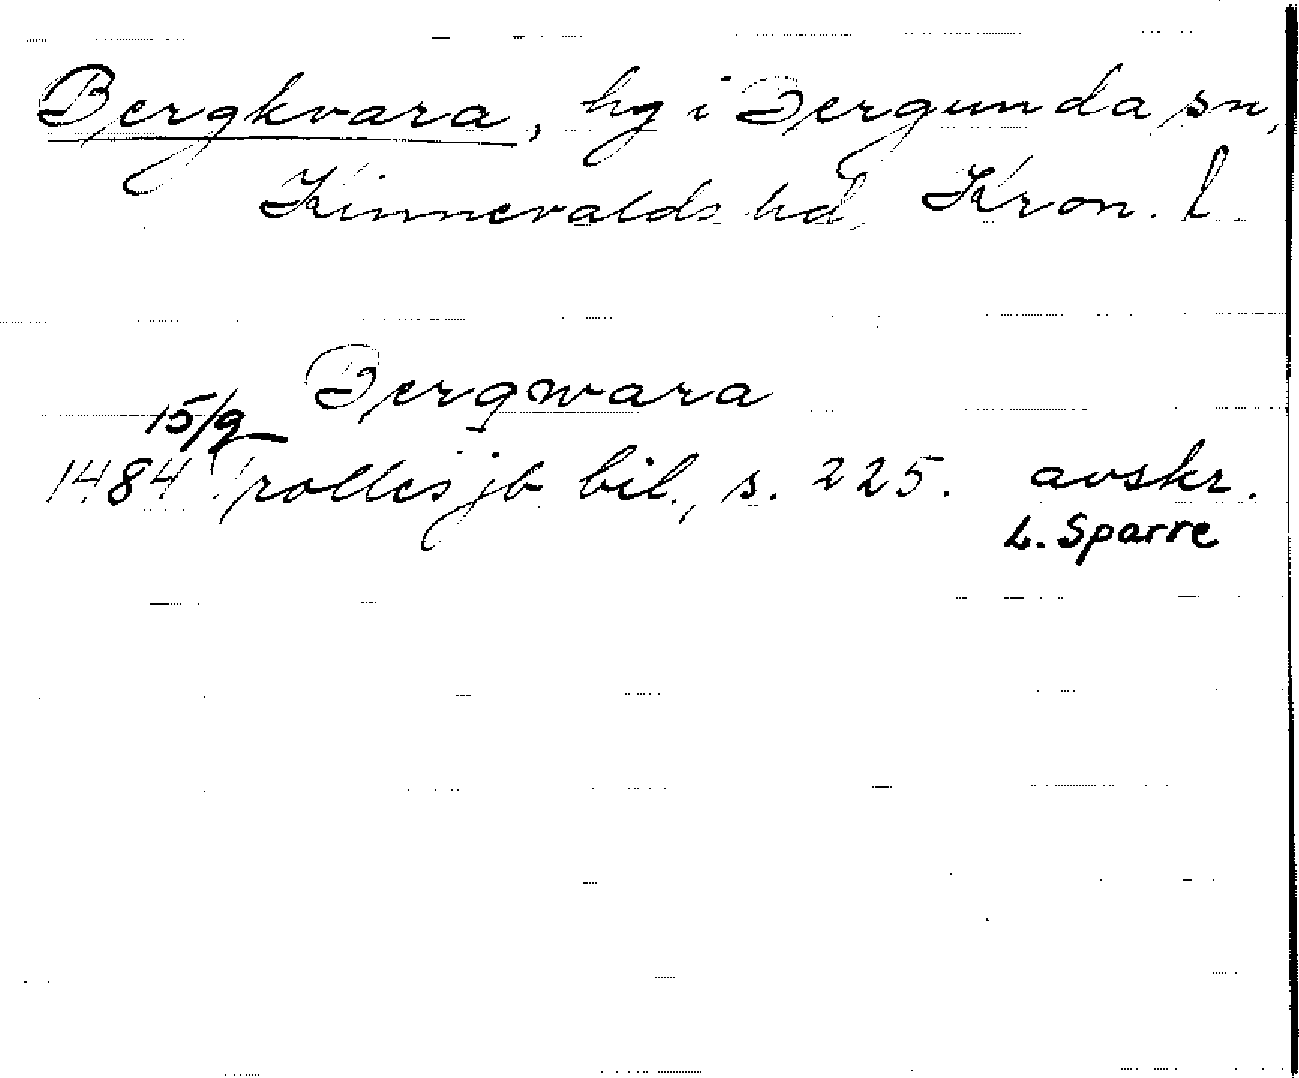 Bergkvara, hg i Bergunda sn,
Kinnevalds hd, Kron. l.
Bergqwara
15/9
1484 Trolles jb bil., s. 225. avskr.
L. Sparre